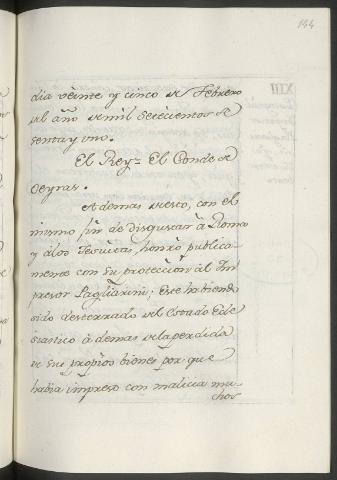 144
dia veinte y cinco de Febrero
del año de mil setecientos se
senta y uno.
El Rey = El Conde de
Oeyras.
Ademas de esto, con el
mismo fin de disgustar à Roma
y à los Jesuitas, honrò publica
mente con su proteccion àl Im
presor Pagliarini; Este habiendo
sido desterrado del Estado Ecle
siastico à demas de la perdida
de sus propios bienes por que
habia impreso con malicia mu
chos
XIII